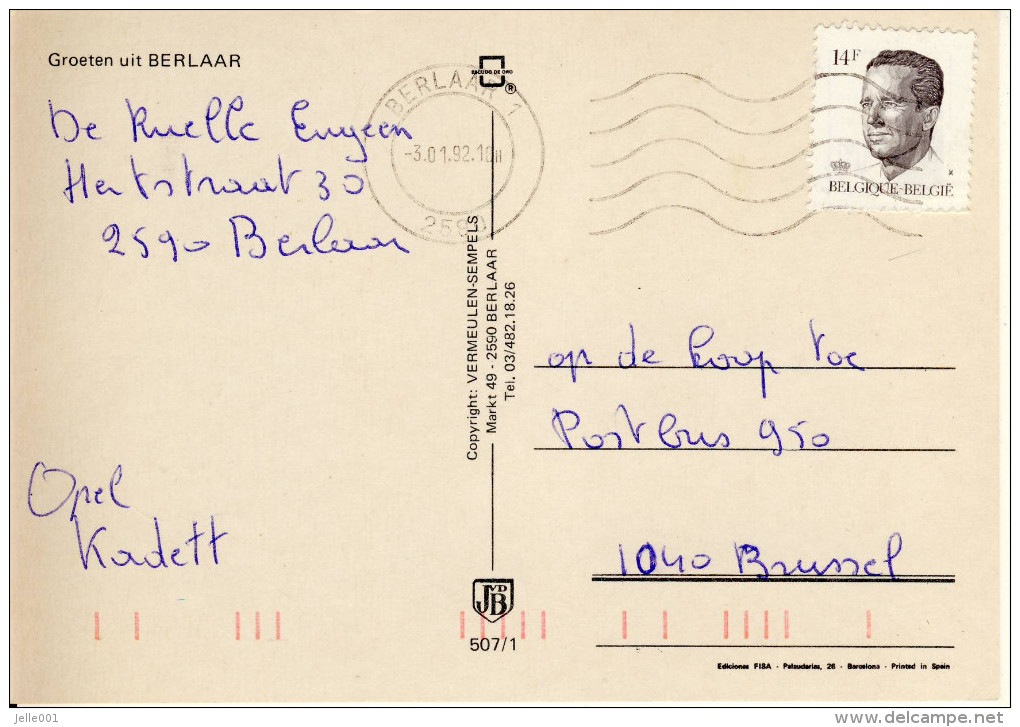 Groeten uit BERLAAR
De Ruelle Eugeen
Hertstraat 30
2590 Berlaar
Opel
Kadett
ESCUDO DE ORO
®
BERLAAR 1
-3.01.92.10H
2590
14F
BELGIQUE-BELGIË
Copyright: VERMEULEN-SEMPELS
Markt 49 - 2590 BERLAAR
Tel. 03/482.18.26
op de koop toe
Postbus 950
1040 Brussel
JVDB
507/1
Ediciones FISA - Palaudarias, 26 - Barcelona - Printed in Spain
jelle001
delcampe.net